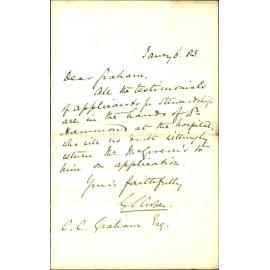 Janry 6. 83.
Dear Graham,
All the testimonials
of applicants for Stewardship
are in the hands of Dr
Hammond at the hospital,
who will no doubt willingly
return Mr. McGivern's to
him on application.
Yours faithfully
C. C. Graham Esq.